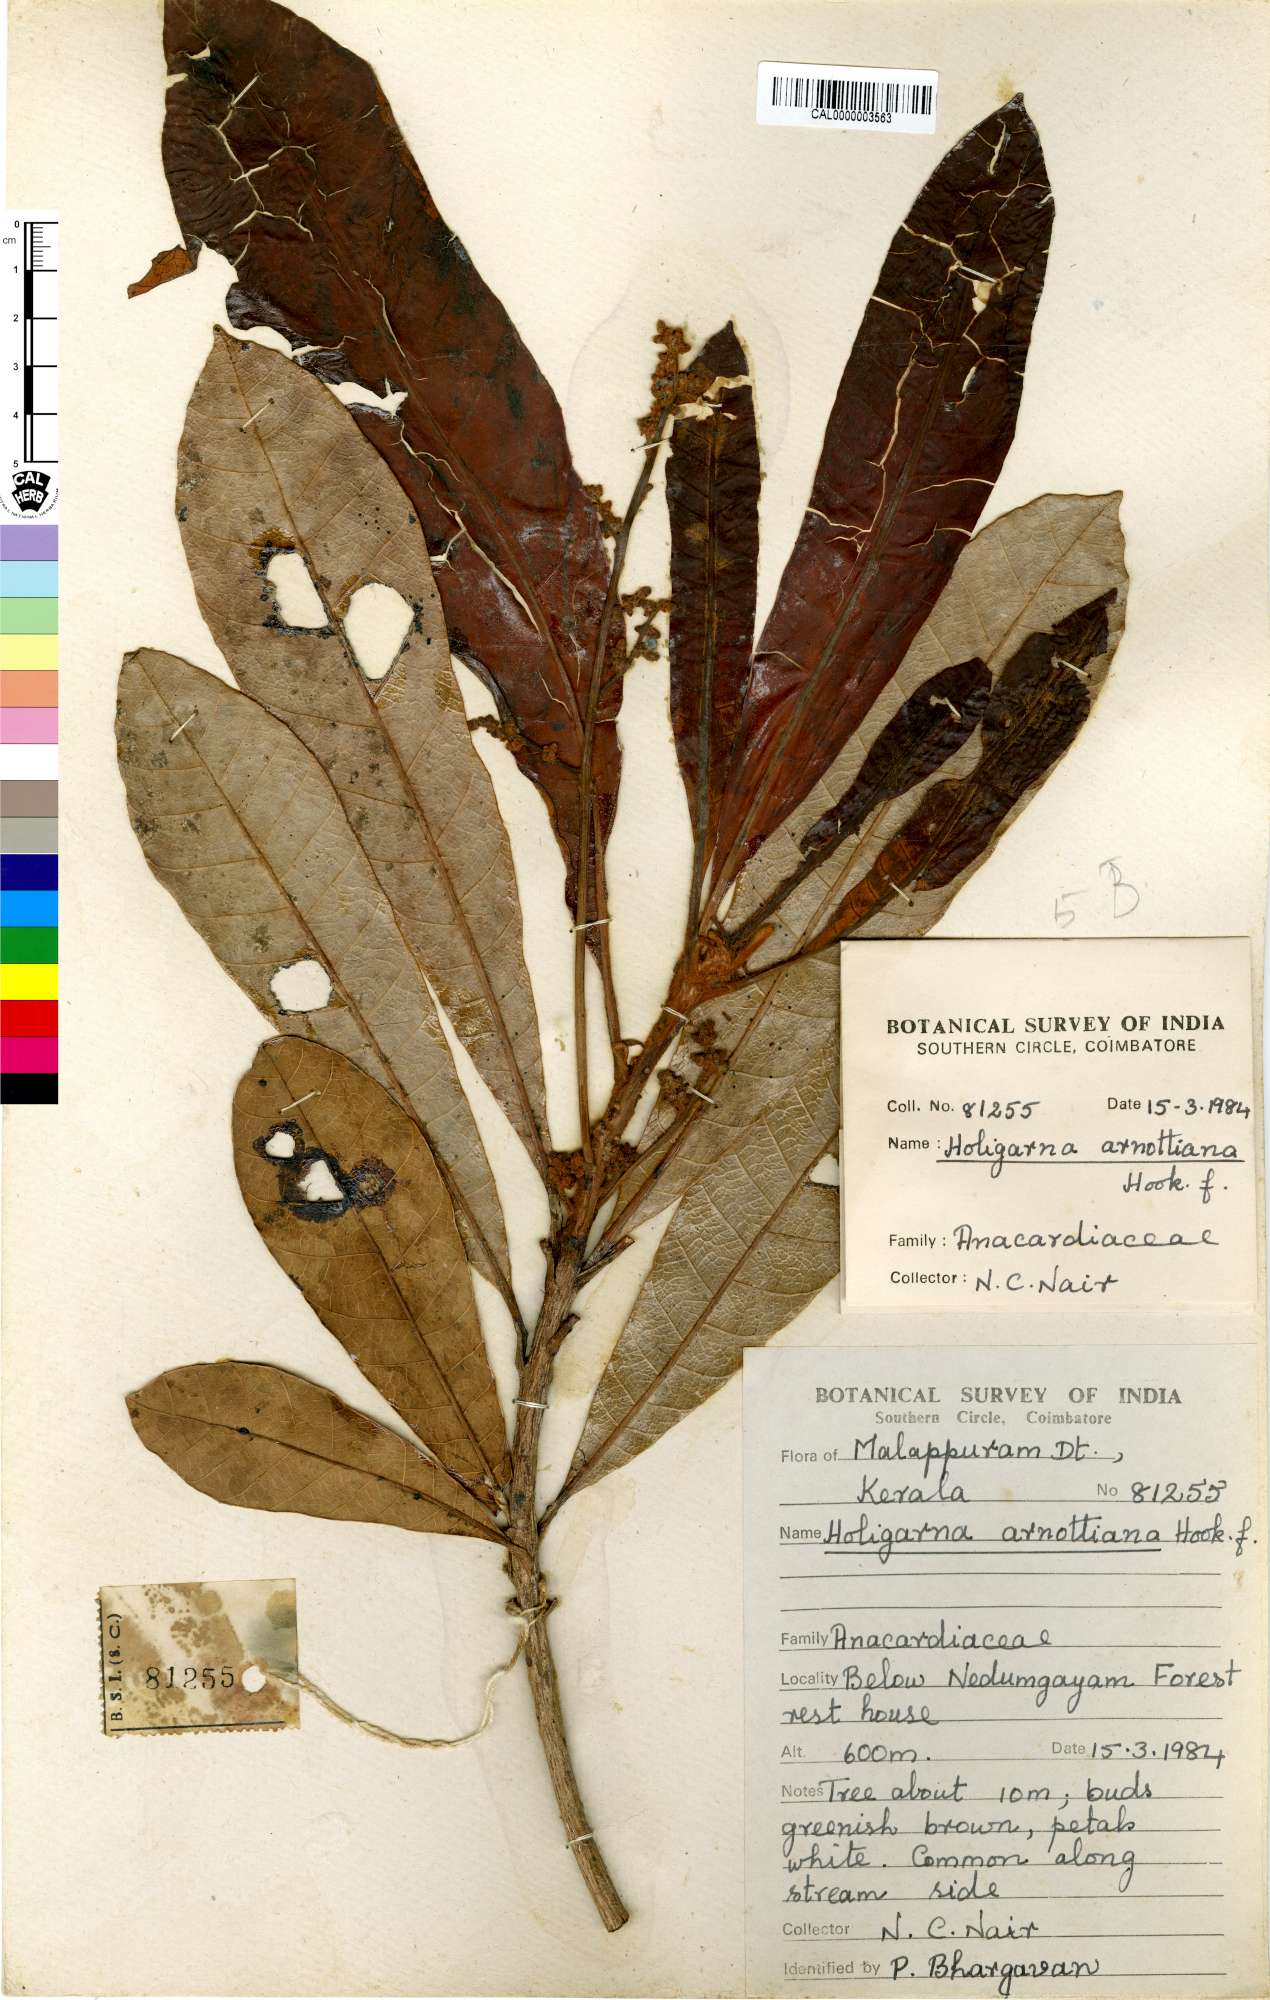 CAL0000003563
0
cm
1
2
3
4
5
CAL
HERB
5 B
BOTANICAL SURVEY OF INDIA
SOUTHERN CIRCLE, COIMBATORE
Coll. No. 81255 Date 15-3.1984
Name: Holigarna arnottiana
Hook. f.
Family: Anacardiaceae
Collector: N. C. Nair
BOTANICAL SURVEY OF INDIA
Southern Circle, Coimbatore
Flora of Malappuram Dt.,
Kerala No 81255
Name Holigarna arnottiana Hook. f.
Family Anacardiaceae
Locality Below Nedumgayam Forest
rest house
Alt. 600m. Date 15.3.1984
Notes Tree about 10m; buds
greenish brown, petals
white. Common along
stream side
Collector N. C. Nair
Identified by P. Bhargavan
B. S. I. (S. C.)
81255